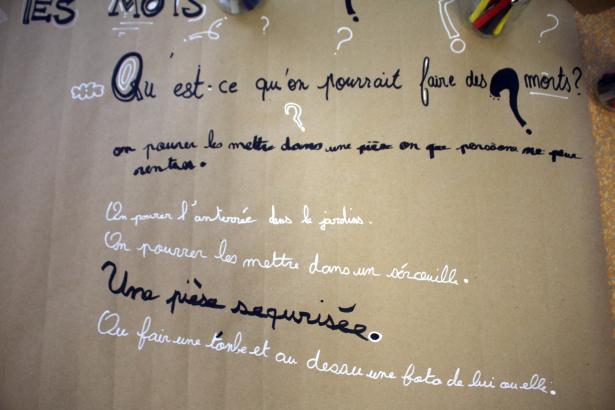 LES MOTS
Qu'est-ce qu'on pourrait faire des morts?
on pourer les mettre dans une pièse on que persone ne peux
rentrer.
On pourer l'anterrée dans le jardins.
On pourrer les mettre dans un sérceuille.
Une pièse sequrisée.
Ou fair une tonbe et au dessu une foto de lui ou elle.